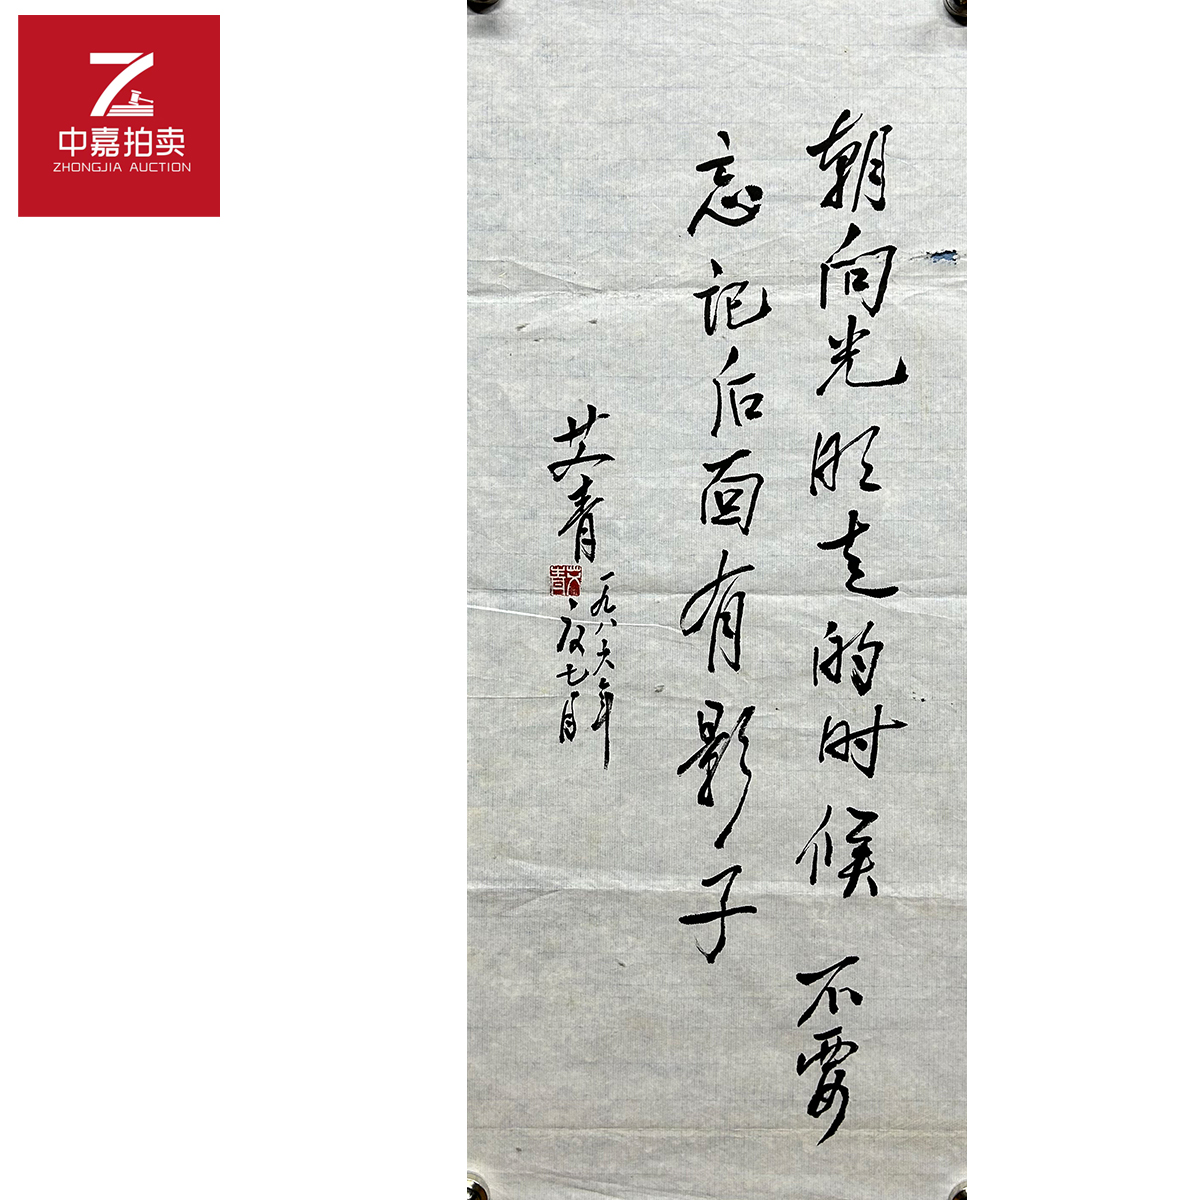 中嘉拍卖
ZHONGJIA AUCTION
朝向光明走的时候 不要
忘记后面有影子
艾青
一九八六年
七月
艾青